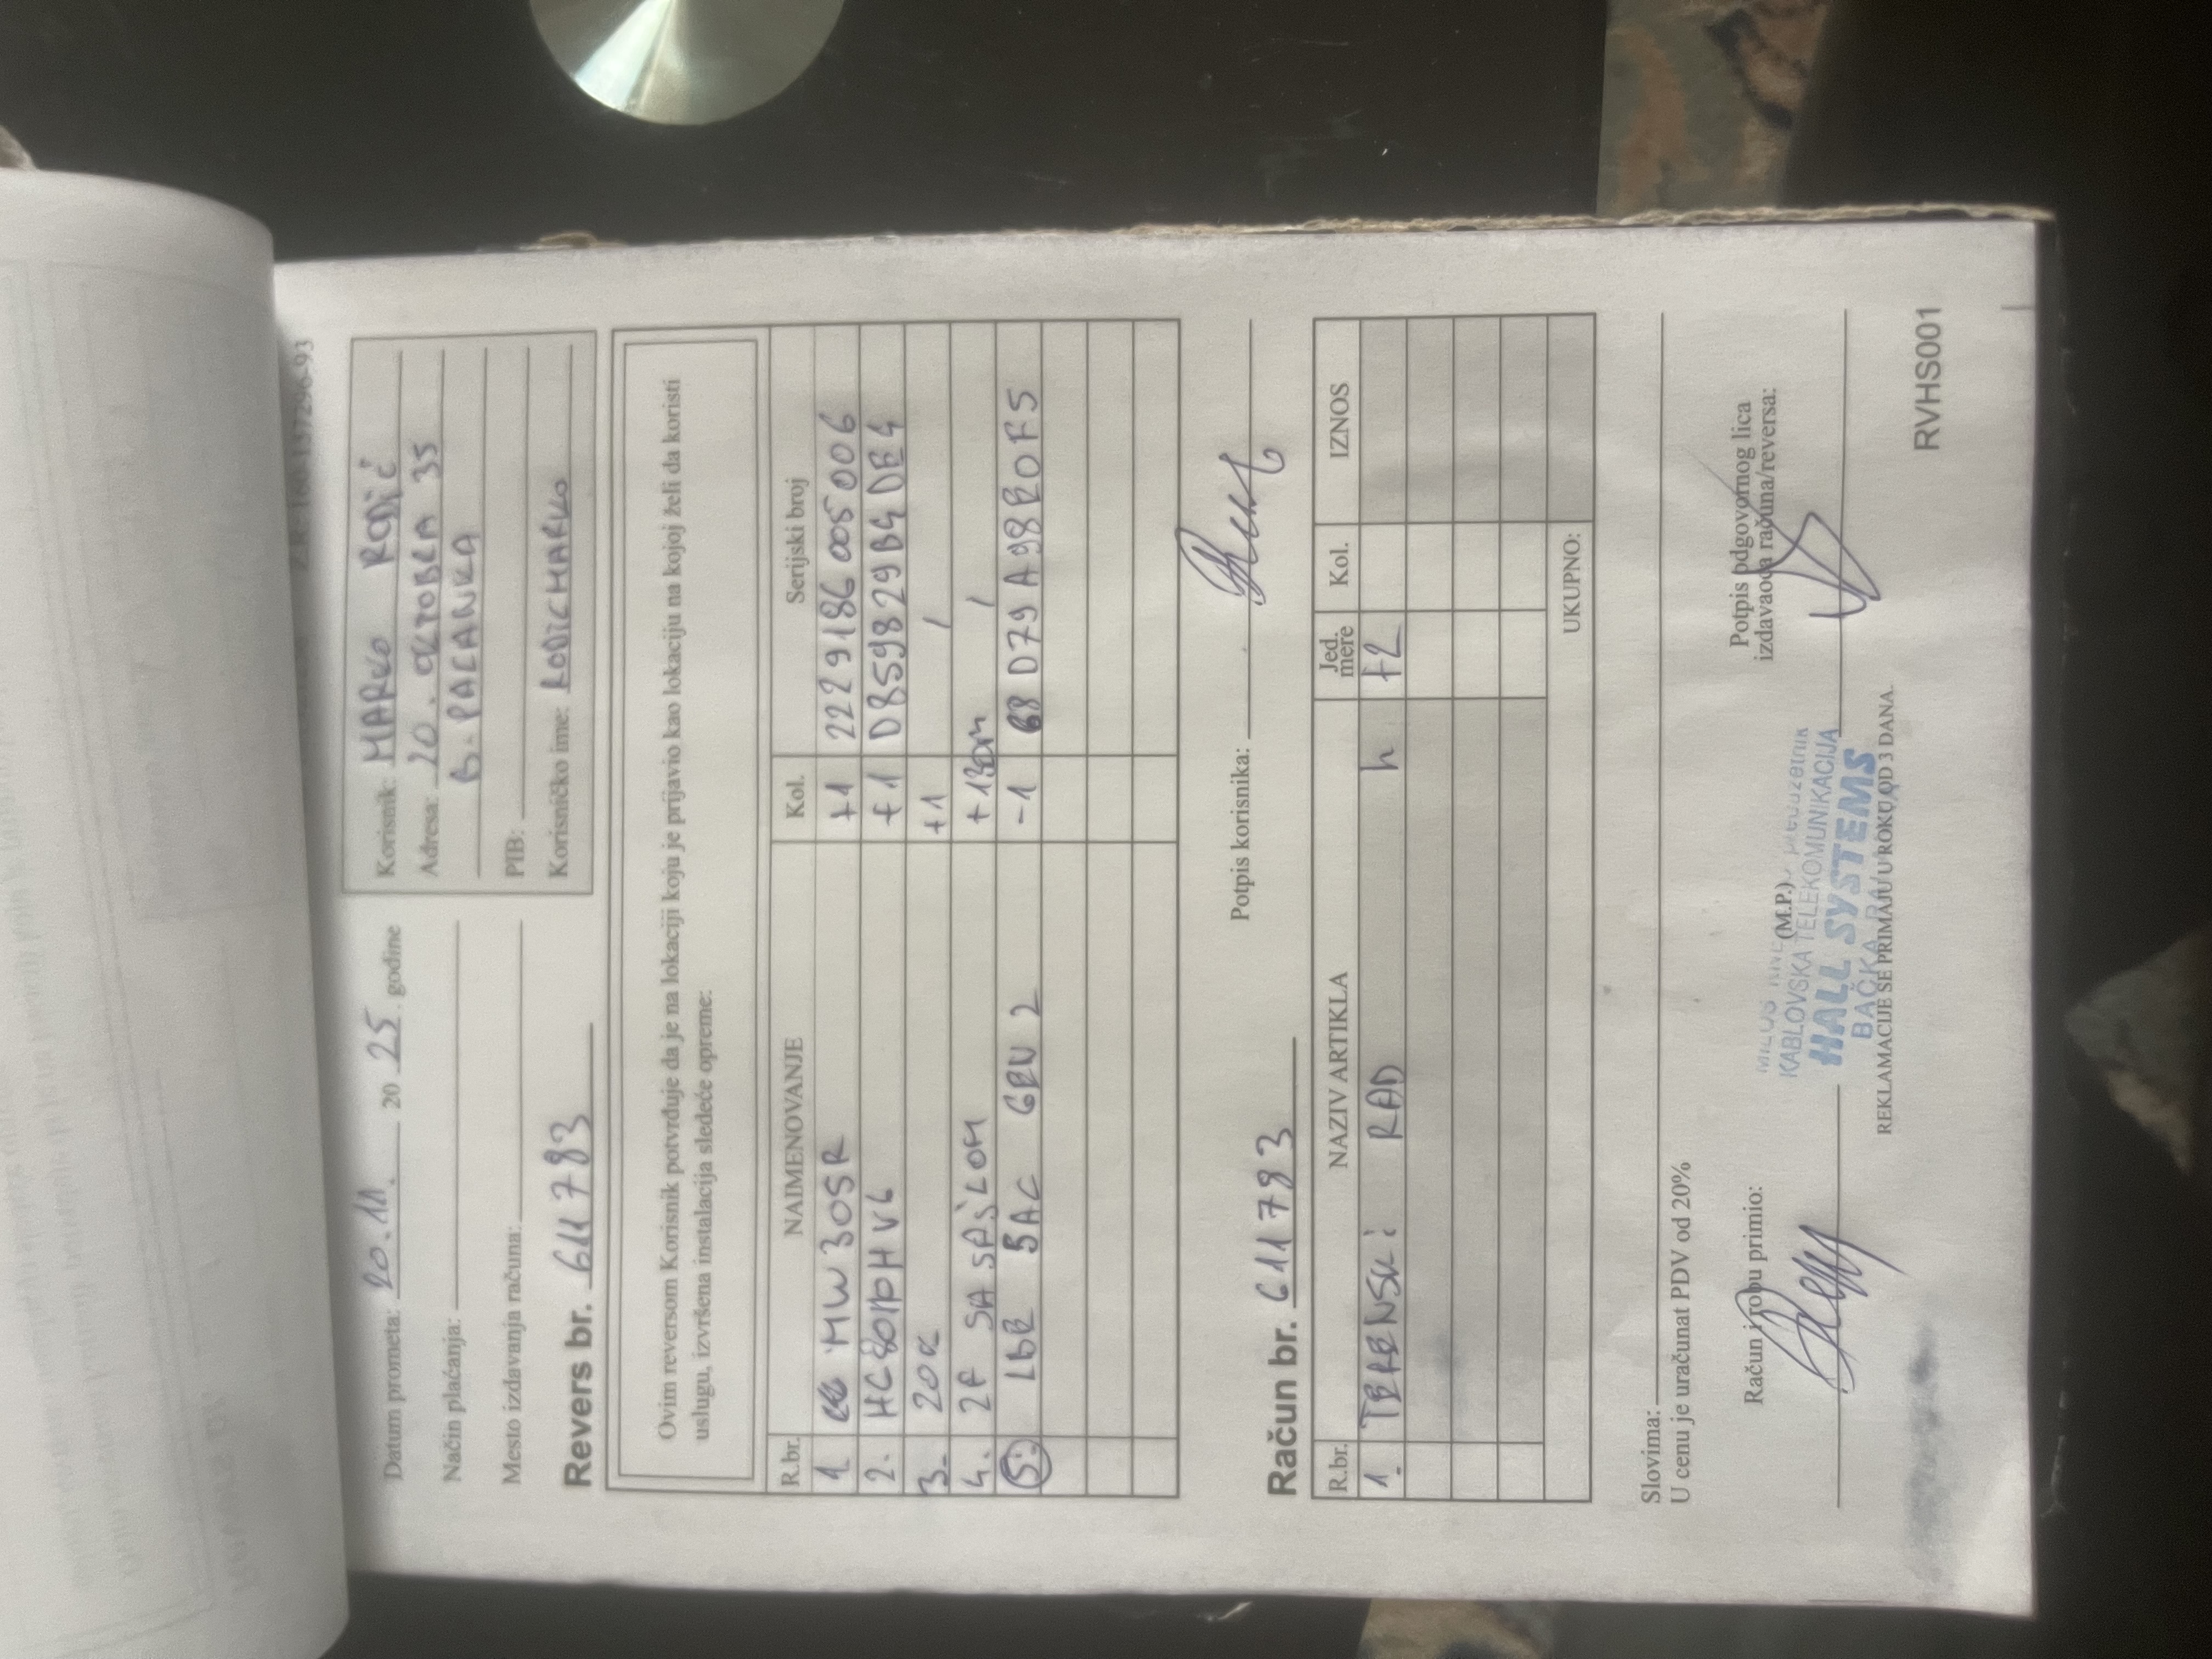 Datum prometa: 20.11. 20 25. godine
Način plaćanja:
Mesto izdavanja računa:
Korisnik: MARKO RODIĆ
Adresa: 20. OKTOBRA 35
B. PALANKA
PIB:
Korisničko ime: RODICMARKO
Revers br. 611783
Ovim reversom Korisnik potvrđuje da je na lokaciji koju je prijavio kao lokaciju na kojoj želi da koristi
uslugu, izvršena instalacija sledeće opreme:
R.br. NAIMENOVANJE Kol. Serijski broj
1. MW30SR +1 2229186005006
2. HC8010HV6 +1 D859829B4DE4
3. +1 /
4. 2F SA SAJLOM +130m /
5. LBE 5AC GEN 2 -1 68D79A98E0F5
Potpis korisnika:
Račun br. 611783
R.br. NAZIV ARTIKLA Jed. mere Kol. IZNOS
1. TERENSKI RAD h
UKUPNO:
Slovima:
U cenu je uračunat PDV od 20%
Račun i robu primio:
(M.P.)
KABLOVSKA TELEKOMUNIKACIJA
HALL SYSTEMS
BAČKA
Potpis odgovornog lica
izdavaoca računa/reversa:
REKLAMACIJE SE PRIMAJU U ROKU OD 3 DANA.
RVHS001